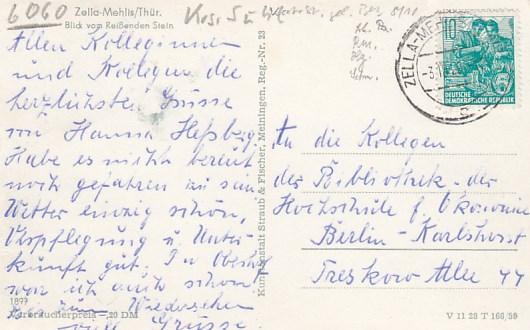 6060
Zella-Mehlis/Thür.
Blick vom Reißenden Stein
Allen Kolleginnen
und Kollegen die
herzlichsten Grüsse
von Hanna Heßberg.
Habe es nicht bereut
noch gefahren zu sein
Wetter einzig schön,
Verpflegung u. Unter-
kunft gut, In Oberhof
war ich auch schon
Wiedersehen
viele Grüsse.
1877
Verbraucherpreis –,20 DM
Kunstanstalt Straub & Fischer, Meiningen, Reg.-Nr. 23
ZELLA-MEHLIS
10
DEUTSCHE
DEMOKRATISCHE REPUBLIK
An die Kollegen
der Bibliothek der
Hochschule f. Ökonomie
Berlin-Karlshorst
Treskow Allee 44
V 11 28 T 166/59